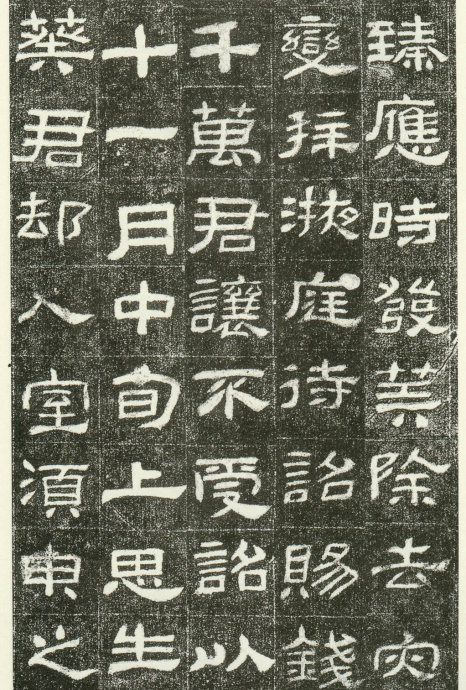 臻應時發筭除去灾
變拜掖庭待詔賜錢
千萬君讓不受詔以
十一月中旬上思生
葵君却入室須臾之